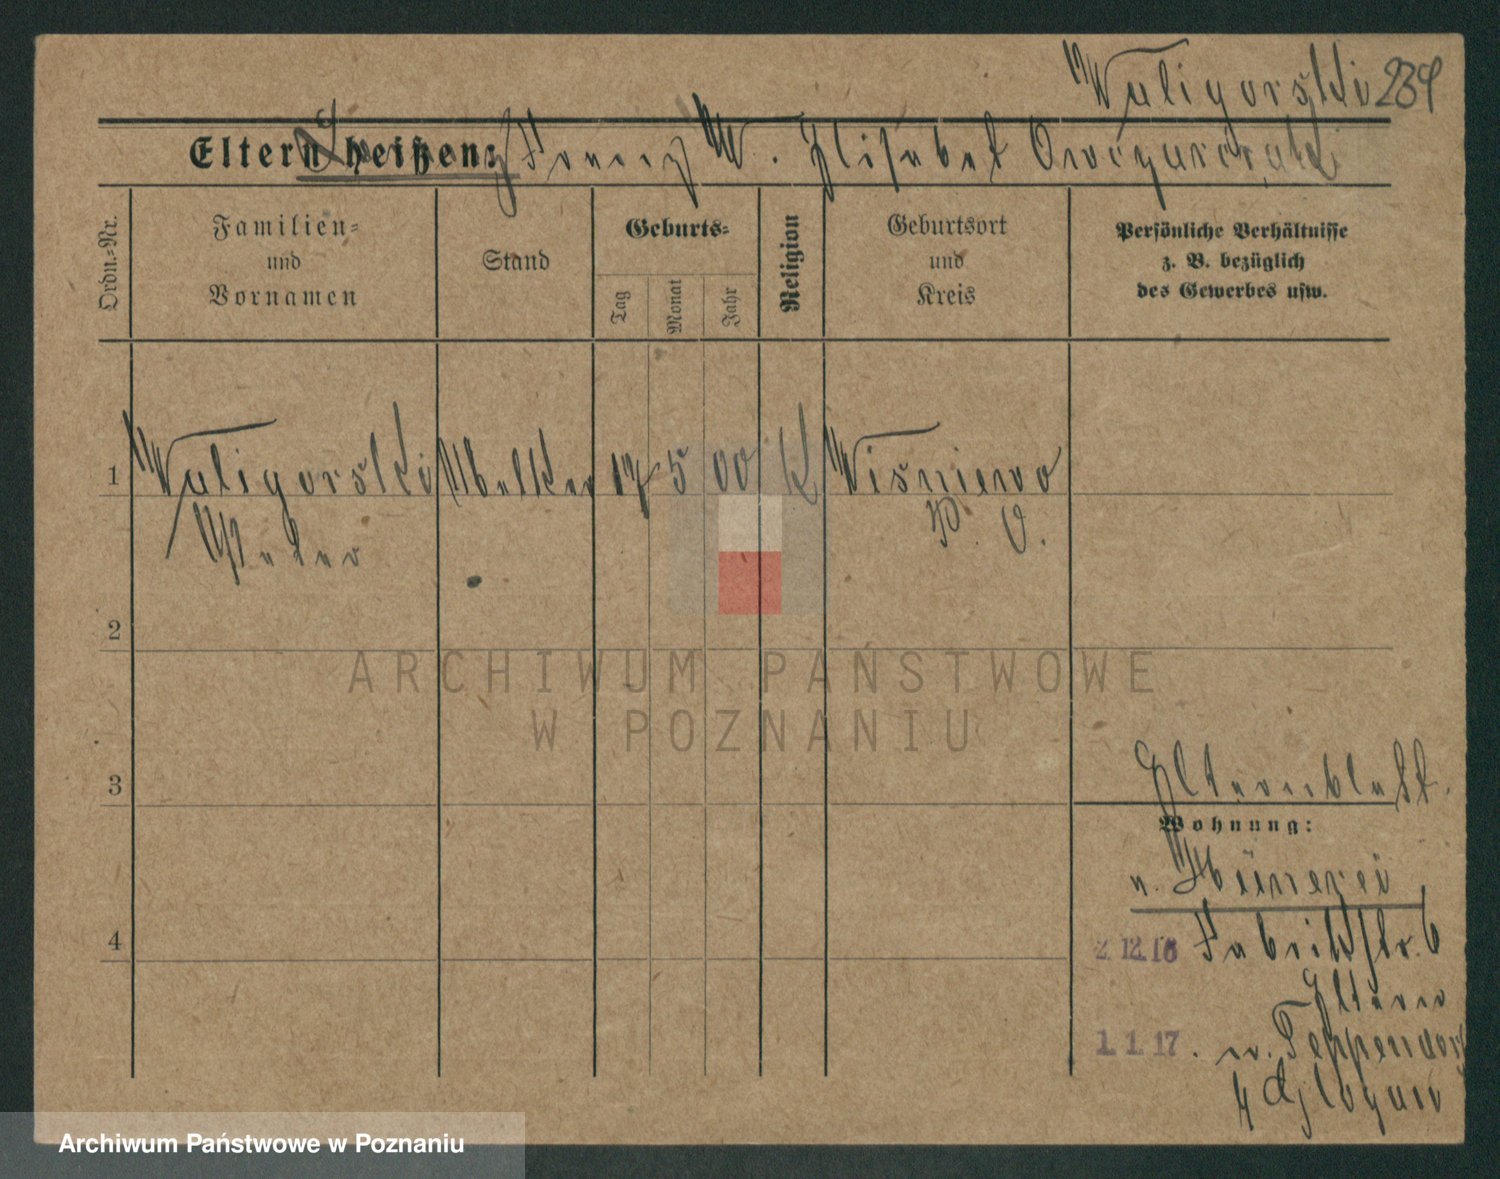 Waligorski 234
Eltern heißen: Franz W. Elisabet
Ordn.-Nr.
Familien-
und
Vornamen
Stand
Geburts-
Tag
Monat
Jahr
Religion
Geburtsort
und
Kreis
Persönliche Verhältnisse
z. B. bezüglich
des Gewerbes usw.
1 Waligorski 17 5 00 K Wisniewo
Peter P. O.
2
ARCHIWUM PAŃSTWOWE
W POZNANIU
3 Elternblatt.
Wohnung:
4
2.12.16 Fabrikstr. 6
Eltern
1.1.17. n. Teppendorf
Glogau
Archiwum Państwowe w Poznaniu